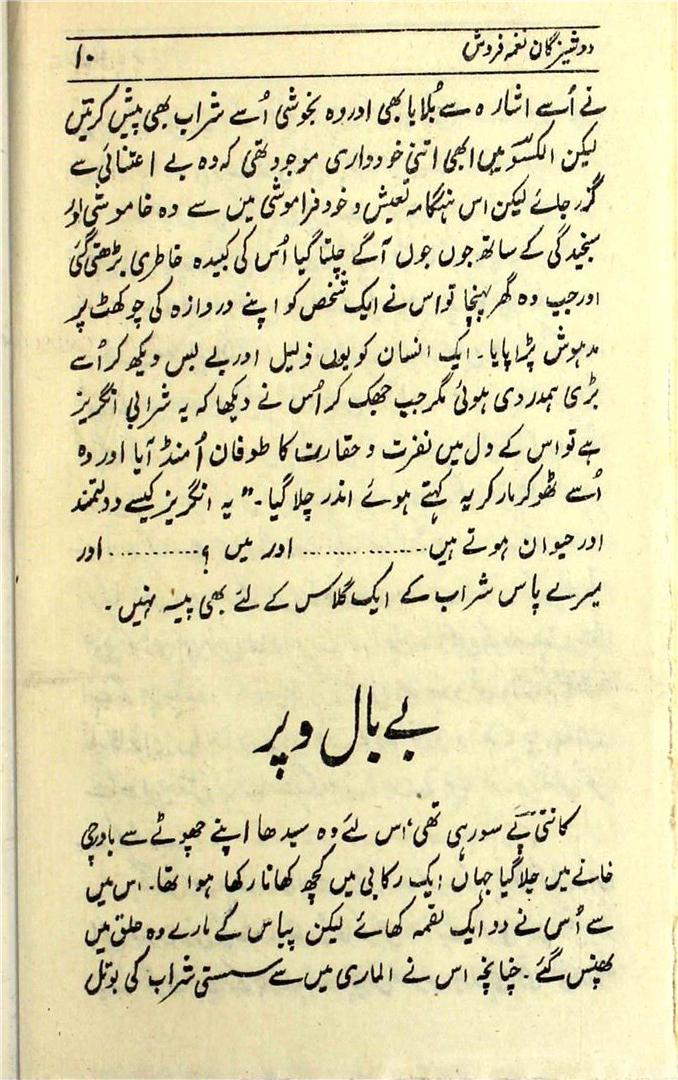 دوشیزگان نغمہ فروش
۱۰
نے اُسے اشارہ سے بُلایا بھی اور وہ بخوشی اُسے شراب بھی پیش کرتیں
لیکن الکسو میں ابھی اتنی خودداری موجود تھی کہ وہ بے اعتنائی سے
گزر جائے لیکن اس ہنگامہ تعیش و خود فراموشی میں سے وہ خاموشی اور
سنجیدگی کے ساتھ جوں جوں آگے چلتا گیا اُس کی کبیدہ خاطری بڑھتی گئی
اور جب وہ گھر پہنچا تو اس نے ایک شخص کو اپنے دروازہ کی چوکھٹ پر
مدہوش پڑا پایا۔ ایک انسان کو یوں ذلیل اور بے بس دیکھ کر اُسے
بڑی ہمدردی ہوئی مگر جب جھک کر اُس نے دیکھا کہ یہ شرابی انگریز
ہے تو اس کے دل میں نفرت و حقارت کا طوفان اُمنڈ آیا اور وہ
اُسے ٹھوکر مار کر یہ کہتے ہوئے اندر چلا گیا۔ "یہ انگریز کیسے دولتمند
اور حیوان ہوتے ہیں .............. اور میں ؟ .......... اور
میرے پاس شراب کے ایک گلاس کے لئے بھی پیسہ نہیں۔
بے بال و پر
سو رہی تھی، اس لئے وہ سیدھا اپنے چھوٹے سے باورچی
خانے میں چلا گیا جہاں ایک رکابی میں کچھ کھانا رکھا ہوا تھا۔ اس میں
سے اُس نے دو ایک لقمہ کھائے لیکن پیاس کے مارے وہ حلق میں
پھنس گئے۔ چنانچہ اس نے الماری میں سے سستی شراب کی بوتل